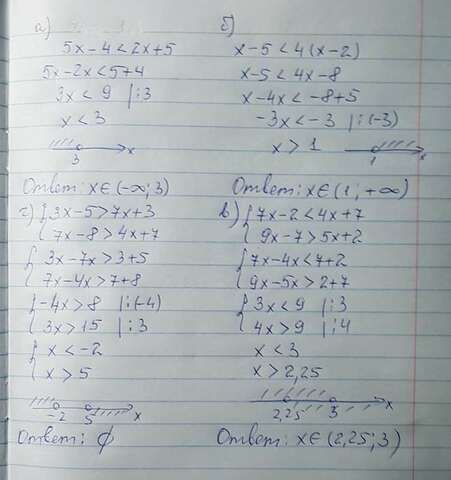 а)
5x-4<2x+5
5x-2x<5+4
3x<9 |:3
x<3
3 x
Ответ: x∈(-∞;3)
б)
x-5<4(x-2)
x-5<4x-8
x-4x<-8+5
-3x<-3 |:(-3)
x>1
1 x
Ответ: x∈(1;+∞)
г) { 3x-5>7x+3
{ 7x-8>4x+7
{ 3x-7x>3+5
{ 7x-4x>7+8
{ -4x>8 |:(-4)
{ 3x>15 |:3
{ x<-2
{ x>5
-2 5 x
Ответ: ∅
в) { 7x-2<4x+7
{ 9x-7>5x+2
{ 7x-4x<7+2
{ 9x-5x>2+7
{ 3x<9 |:3
{ 4x>9 |:4
x<3
x>2,25
2,25 3 x
Ответ: x∈(2,25;3)